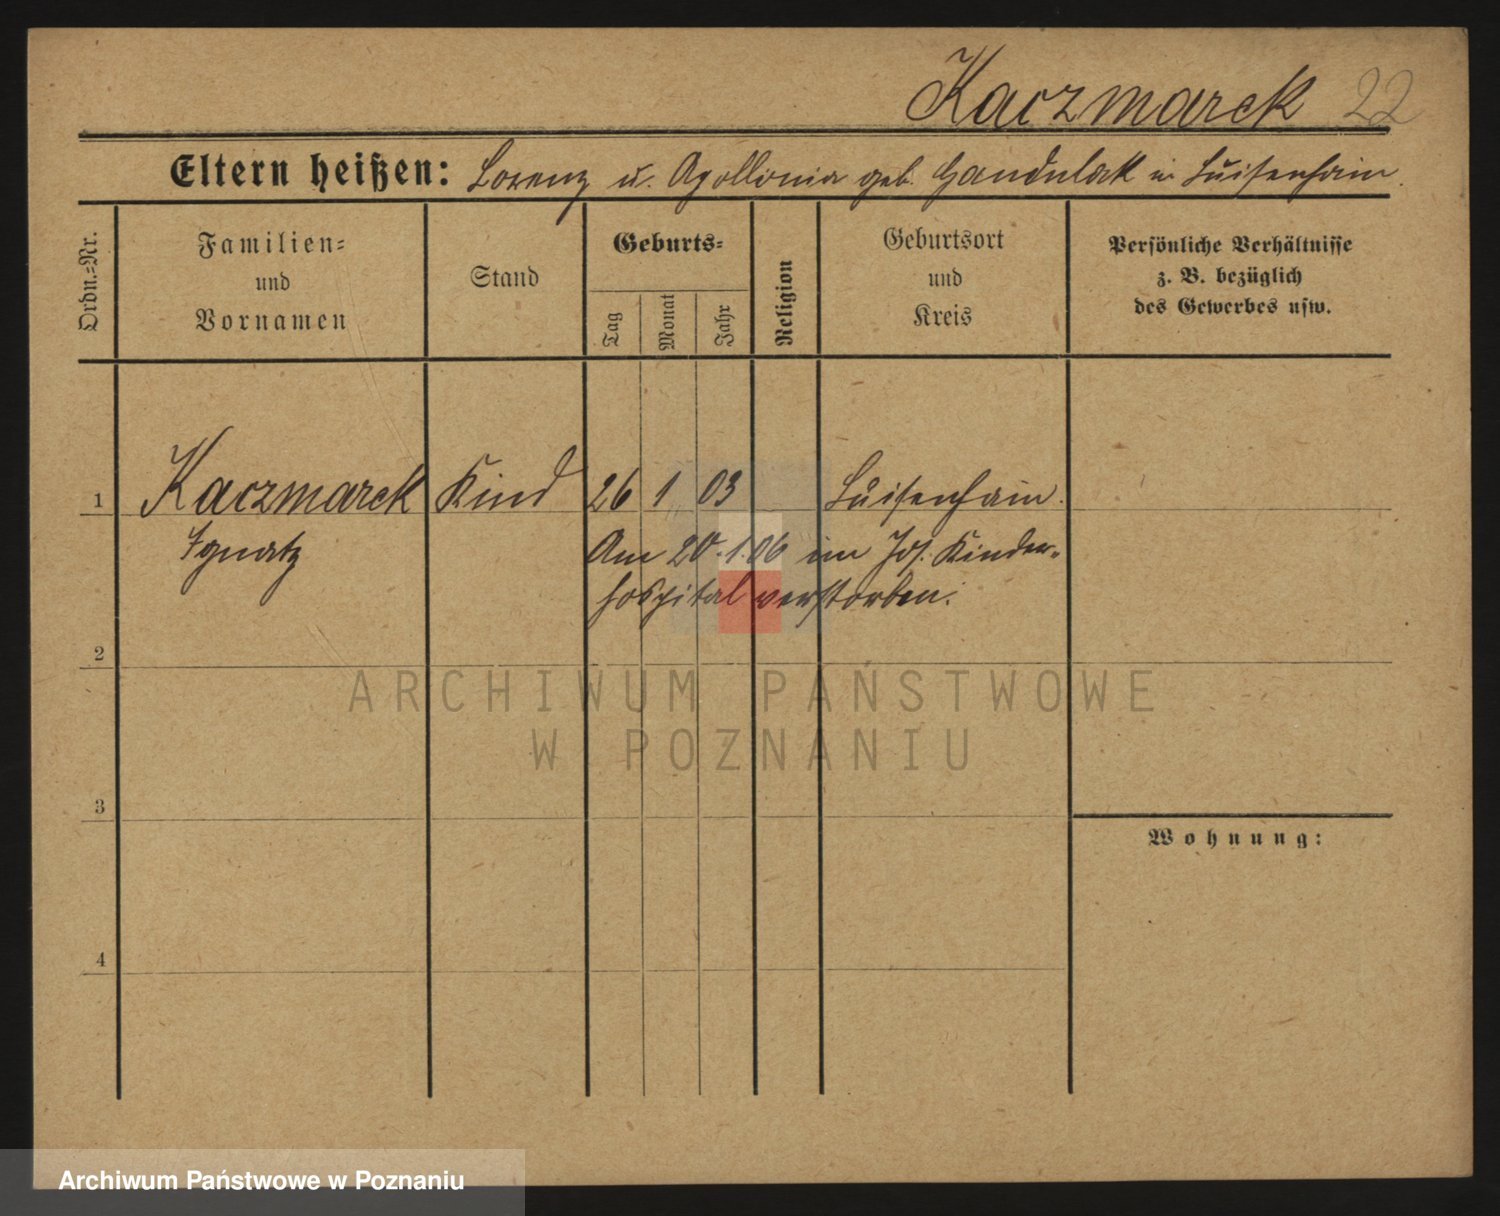 Kaczmarek 22
Eltern heißen: Lorenz u. Apollonia geb. Handulak in Luisenhain.
Ordn.-Nr.
Familien-
und
Vornamen
Stand
Geburts-
Tag
Monat
Jahr
Religion
Geburtsort
und
Kreis
Persönliche Verhältnisse
z. B. bezüglich
des Gewerbes usw.
1 Kaczmarek Kind 26 1 03 Luisenhain.
Ignatz Am 20.1.06 im Jos. Kinder-
hospital verstorben.
2
ARCHIWUM PAŃSTWOWE
W POZNANIU
3
Wohnung:
4
Archiwum Państwowe w Poznaniu